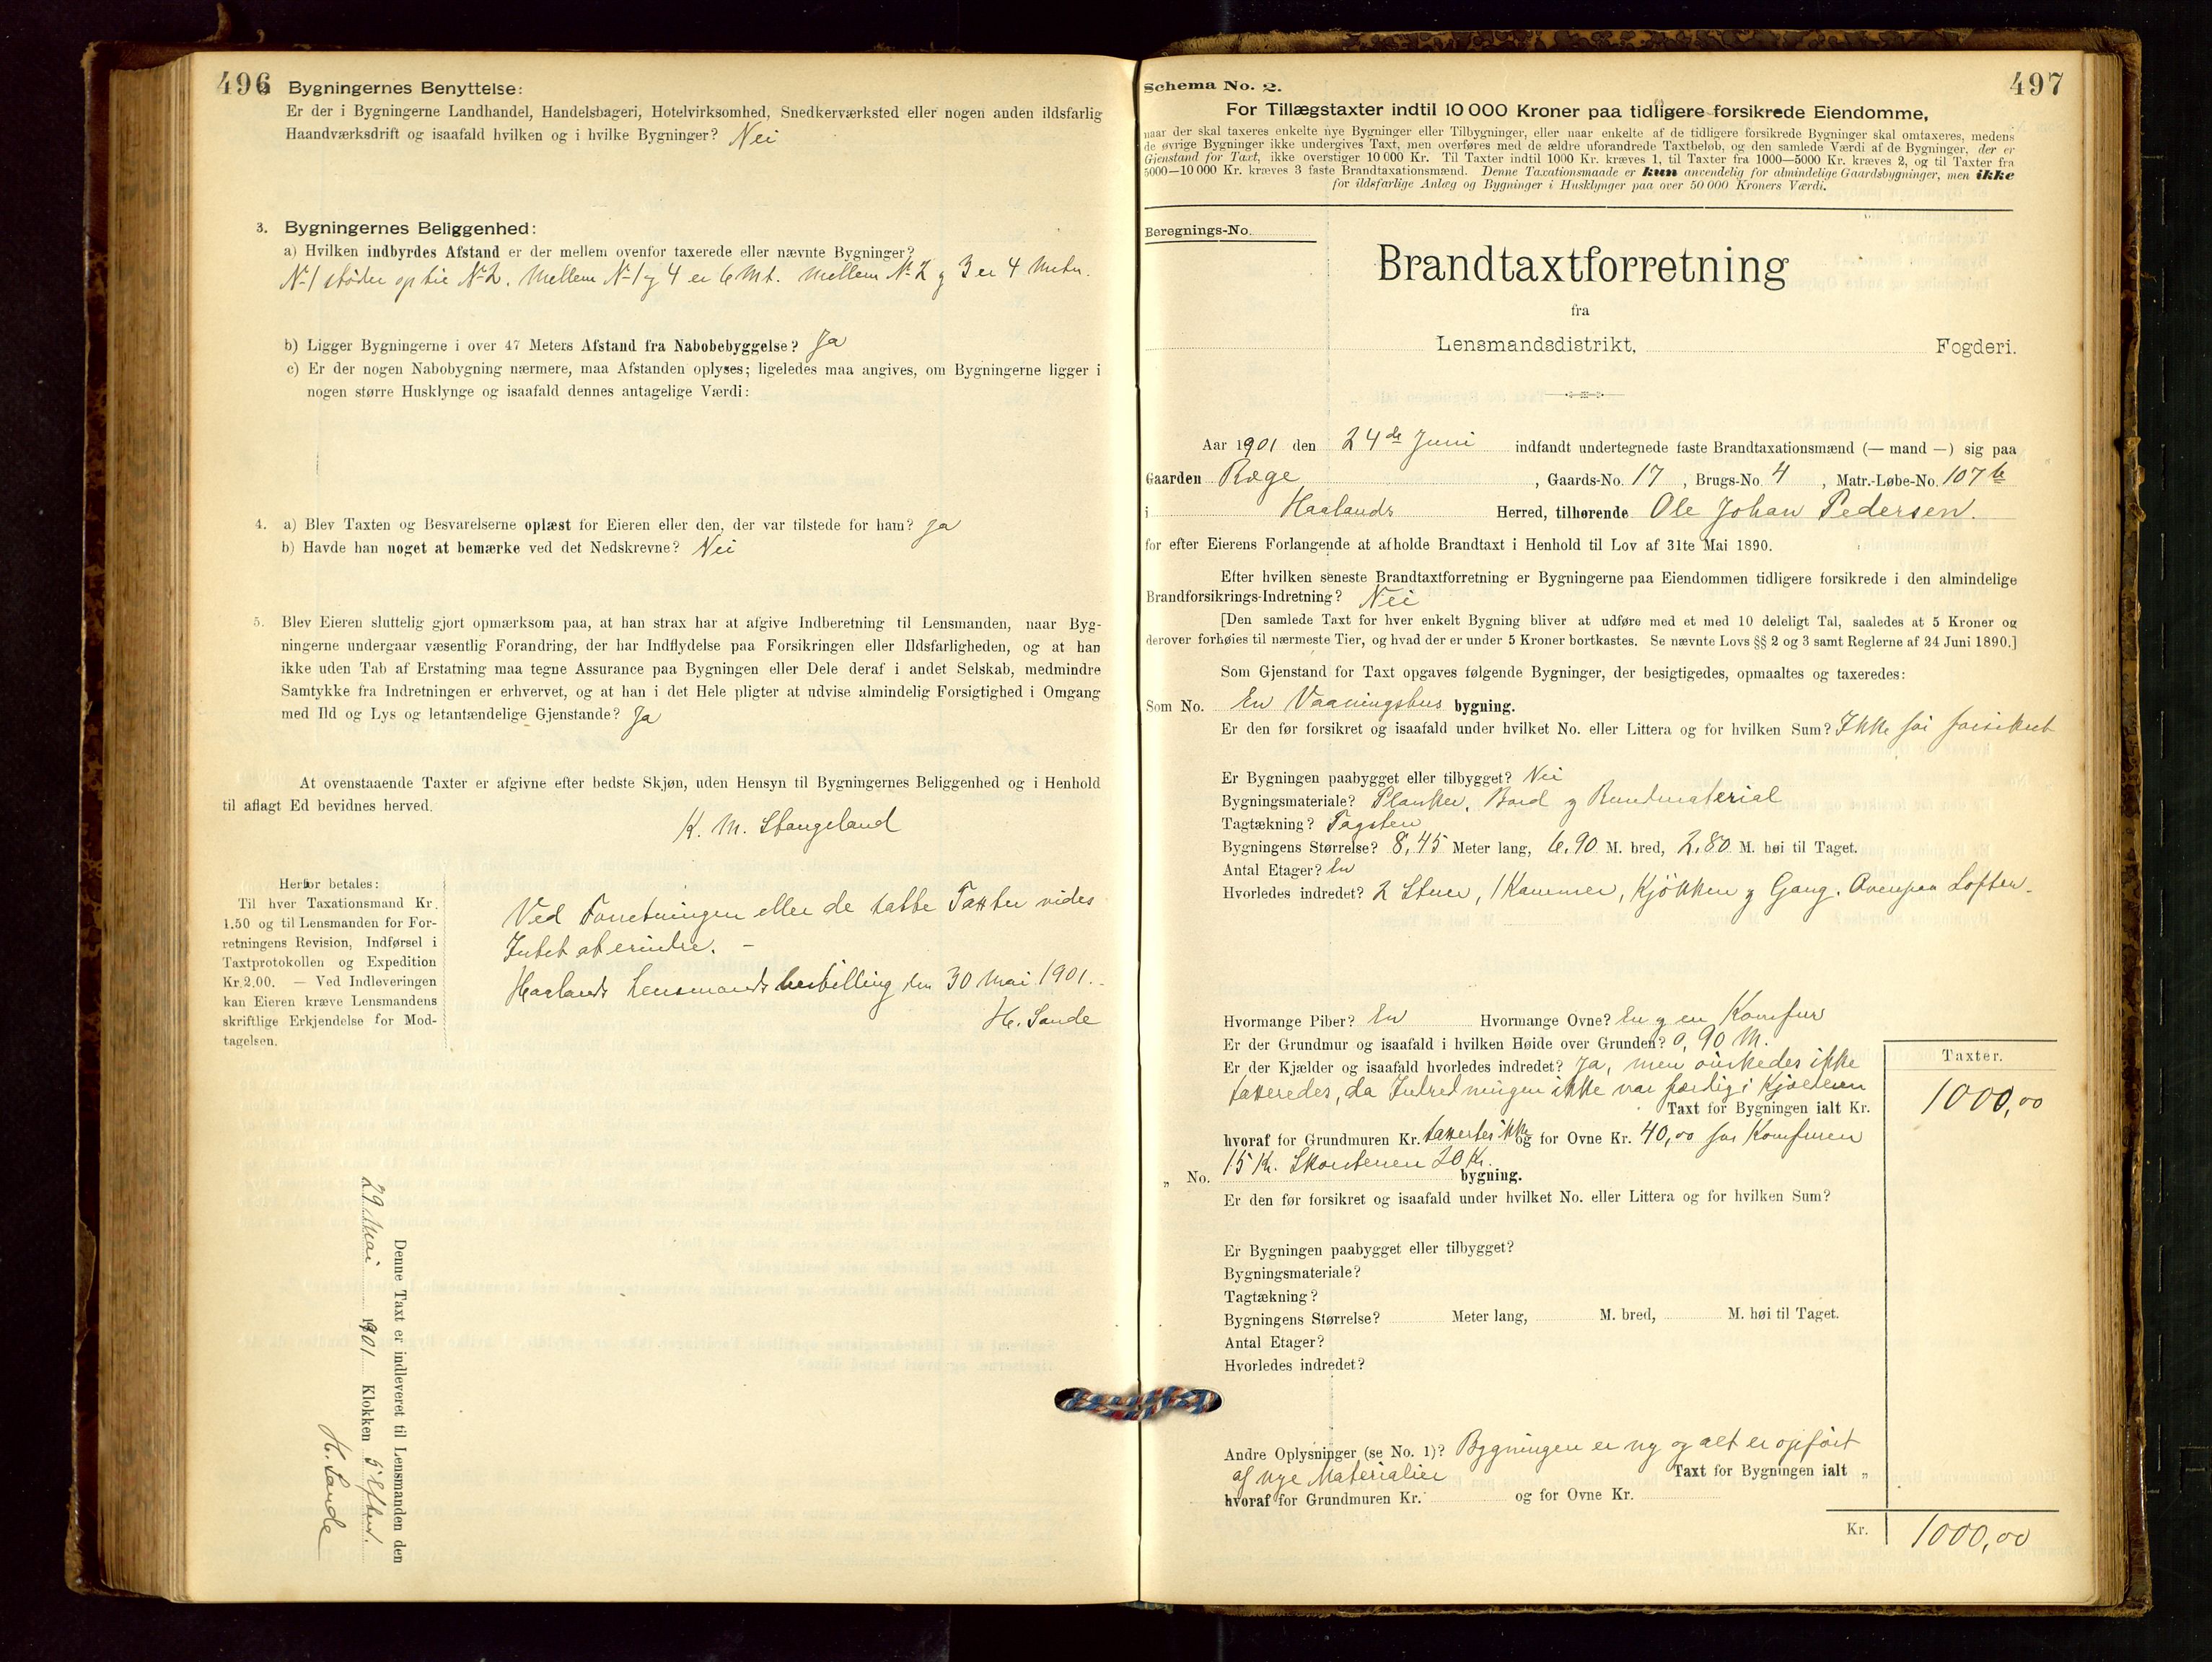 496 Bygningernes Benyttelse:
Er der i Bygningerne Landhandel, Handelsbageri, Hotelvirksomhed, Snedkerværksted eller nogen anden ildsfarlig
Haandværksdrift og isaafald hvilken og i hvilke Bygninger? Nei
3. Bygningernes Beliggenhed:
a) Hvilken indbyrdes Afstand er der mellem ovenfor taxerede eller nævnte Bygninger?
N-1 støder op til N-2. Mellem N-1 og 4 er 6 Mt. mellem N-2 og 3 er 4 Meter.
b) Ligger Bygningerne i over 47 Meters Afstand fra Nabobebyggelse? Ja
c) Er der nogen Nabobygning nærmere, maa Afstanden oplyses; ligeledes maa angives, om Bygningerne ligger i
nogen større Husklynge og isaafald dennes antagelige Værdi:
4. a) Blev Taxten og Besvarelserne oplæst for Eieren eller den, der var tilstede for ham? Ja
b) Havde han noget at bemærke ved det Nedskrevne? Nei
5. Blev Eieren sluttelig gjort opmærksom paa, at han strax har at afgive Indberetning til Lensmanden, naar Byg-
ningerne undergaar væsentlig Forandring, der har Indflydelse paa Forsikringen eller Ildsfarligheden, og at han
ikke uden Tab af Erstatning maa tegne Assurance paa Bygningen eller Dele deraf i andet Selskab, medmindre
Samtykke fra Indretningen er erhvervet, og at han i det Hele pligter at udvise almindelig Forsigtighed i Omgang
med Ild og Lys og letantændelige Gjenstande? Ja
At ovenstaaende Taxter er afgivne efter bedste Skjøn, uden Hensyn til Bygningernes Beliggenhed og i Henhold
til aflagt Ed bevidnes herved.
K. M. Stangeland
Herfor betales:
Til hver Taxationsmand Kr.
1.50 og til Lensmanden for For-
retningens Revision, Indførsel i
Taxtprotokollen og Expedition
Kr. 2.00. — Ved Indleveringen
kan Eieren kræve Lensmandens
skriftlige Erkjendelse for Mod-
tagelsen.
Ved Forretningen eller de satte Taxter vides
Intet at erindre. -
Haalands Lensmandsbestilling den 30 Mai 1901.
H. Sande
Denne Taxt er indleveret til Lensmanden den
29 Mai 1901 Klokken 5 Efterm.
H. Sande
Schema No. 2. 497
For Tillægstaxter indtil 10 000 Kroner paa tidligere forsikrede Eiendomme,
naar der skal taxeres enkelte nye Bygninger eller Tilbygninger, eller naar enkelte af de tidligere forsikrede Bygninger skal omtaxeres, medens
de øvrige Bygninger ikke undergives Taxt, men overføres med de ældre uforandrede Taxtbeløb, og den samlede Værdi af de Bygninger, der er
Gjenstand for Taxt, ikke overstiger 10 000 Kr. Til Taxter indtil 1000 Kr. kræves 1, til Taxter fra 1000—5000 Kr. kræves 2, og til Taxter fra
5000—10 000 Kr. kræves 3 faste Brandtaxationsmænd. Denne Taxationsmaade er kun anvendelig for almindelige Gaardsbygninger, men ikke
for ildsfarlige Anlæg og Bygninger i Husklynger paa over 50 000 Kroners Værdi.
Beregnings-No.
Brandtaxtforretning
fra
Lensmandsdistrikt, Fogderi.
Aar 1901 den 24de Juni indfandt undertegnede faste Brandtaxationsmænd (— mand —) sig paa
Gaarden Ræge, Gaards-No. 17, Brugs-No. 4, Matr.-Løbe-No. 107 b
i Haalands Herred, tilhørende Ole Johan Pedersen.
for efter Eierens Forlangende at afholde Brandtaxt i Henhold til Lov af 31te Mai 1890.
Efter hvilken seneste Brandtaxtforretning er Bygningerne paa Eiendommen tidligere forsikrede i den almindelige
Brandforsikrings-Indretning? Nei
[Den samlede Taxt for hver enkelt Bygning bliver at udføre med et med 10 deleligt Tal, saaledes at 5 Kroner og
derover forhøies til nærmeste Tier, og hvad der er under 5 Kroner bortkastes. Se nævnte Lovs §§ 2 og 3 samt Reglerne af 24 Juni 1890.]
Som Gjenstand for Taxt opgaves følgende Bygninger, der besigtigedes, opmaaltes og taxeredes:
Som No. En Vaaningshus bygning.
Er den før forsikret og isaafald under hvilket No. eller Littera og for hvilken Sum? Ikke før forsikret
Er Bygningen paabygget eller tilbygget? Nei
Bygningsmateriale? Planker, Bord og Bundmaterial
Tagtækning? Tagsten
Bygningens Størrelse? 8,45 Meter lang, 6,90 M. bred, 2,80 M. høi til Taget.
Antal Etager? En
Hvorledes indredet? 2 Stuer, 1 Kammer, Kjøkken og Gang. Ovenpaa Loften.
Hvormange Piber? En Hvormange Ovne? En og en Komfur
Er der Grundmur og isaafald i hvilken Høide over Grunden? 0,90 M.
Er der Kjælder og isaafald hvorledes indredet? Ja, men ønskedes ikke
taxeredes, da Indredningen ikke var færdig i Kjælderen
Taxter.
Taxt for Bygningen ialt Kr. 1000,00
hvoraf for Grundmuren Kr. taxertes ikke og for Ovne Kr. 40,00 for Komfuren
15 Kr. Skorstenen 20 Kr.
„ No. bygning.
Er den før forsikret og isaafald under hvilket No. eller Littera og for hvilken Sum?
Er Bygningen paabygget eller tilbygget?
Bygningsmateriale?
Tagtækning?
Bygningens Størrelse? Meter lang, M. bred, M. høi til Taget.
Antal Etager?
Hvorledes indredet?
Andre Oplysninger (se No. 1)? Bygningen er ny og alt er opført
af nye Materialier Taxt for Bygningen ialt „
hvoraf for Grundmuren Kr. og for Ovne Kr.
Kr. 1000,00